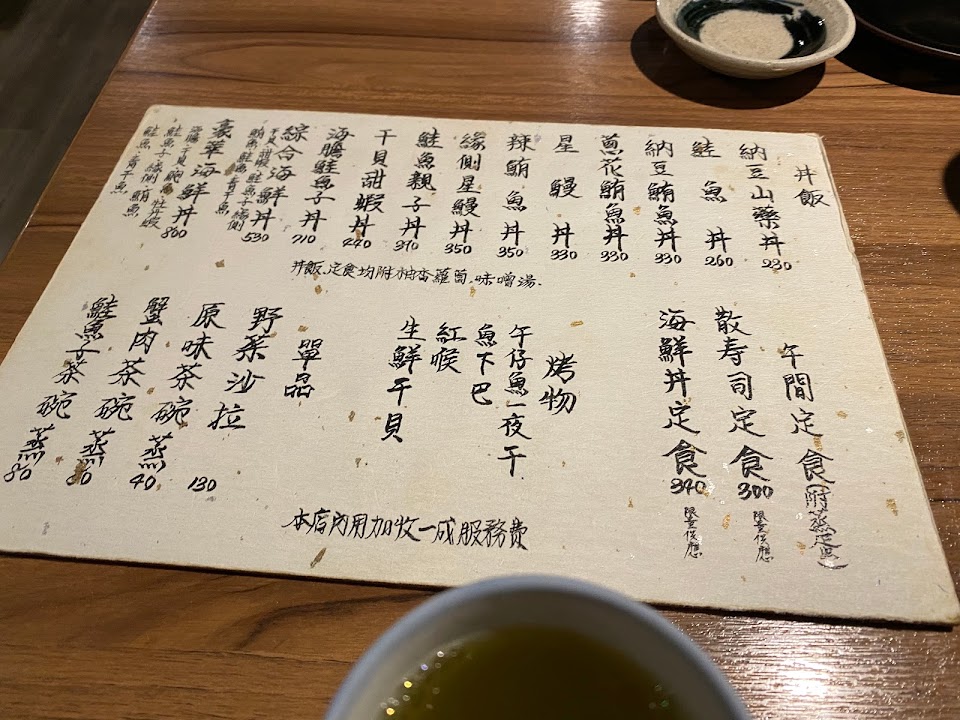 丼飯
納豆山藥丼 230
鮭魚丼 260
納豆鮪魚丼 330
蔥花鮪魚丼 330
星鰻丼 330
辣鮪魚丼 350
緣側星鰻丼 350
鮭魚親子丼
干貝甜蝦丼
海膽鮭魚子丼 710
綜合海鮮丼 530
豪華海鮮丼 860
鮭魚子、緣側、鮪魚
鮭魚、青干魚
丼飯、定食均附柚香蘿蔔、味噌湯.
午間定食(附蒸蛋)
散寿司定食 300 限量供應
海鮮丼定食 340 限量供應
烤物
午仔魚一夜干
魚下巴
紅喉
生鮮干貝
單品
野菜沙拉 130
原味茶碗蒸 40
蟹肉茶碗蒸 80
鮭魚子茶碗蒸 80
本店內用加收一成服務費